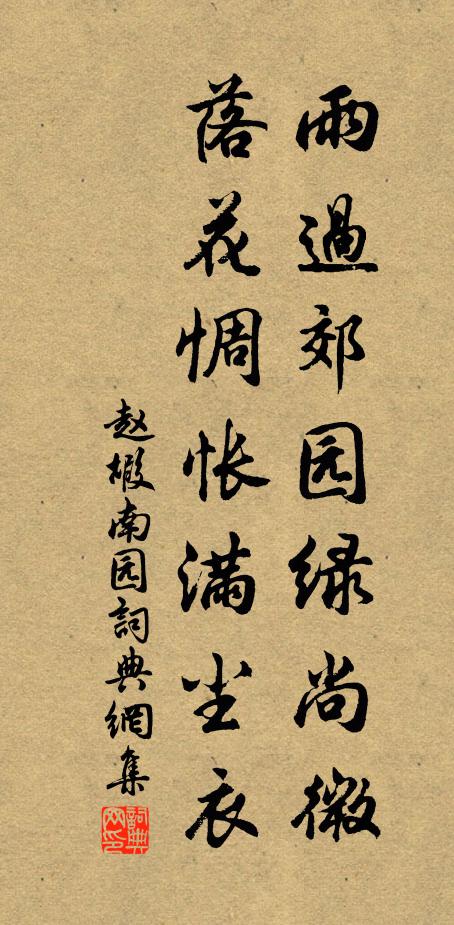 雨過郊园绿尚微
落花惆怅满尘衣
赵嘏南园詞典網集
詞典网印